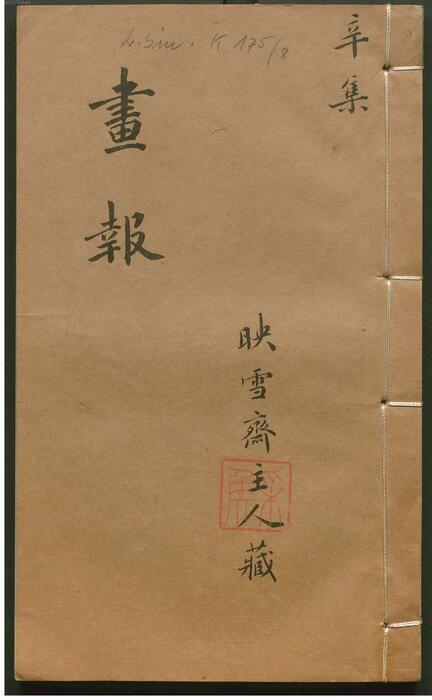 L. sin. K 175/8
辛集
畫報
映雪齋主人藏